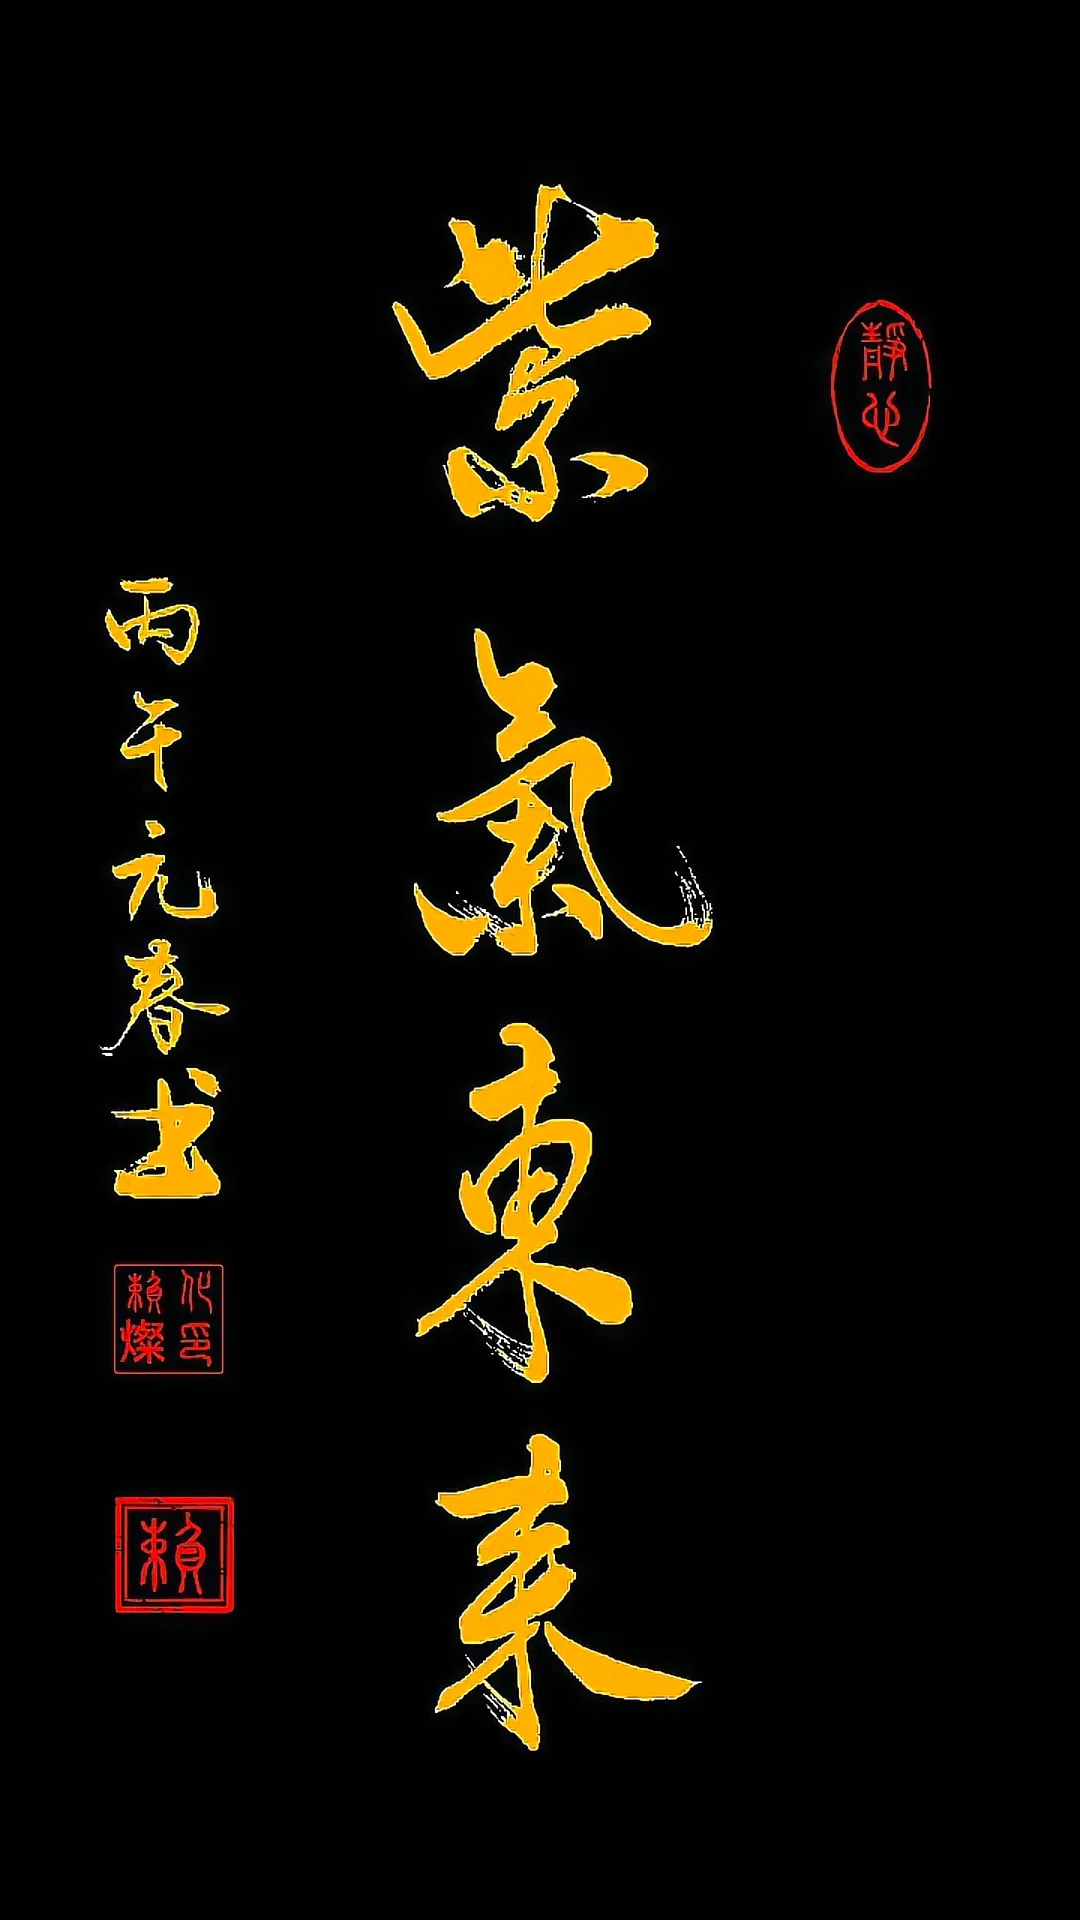 靜心
紫氣東來
丙午元春書
賴燦化印
賴